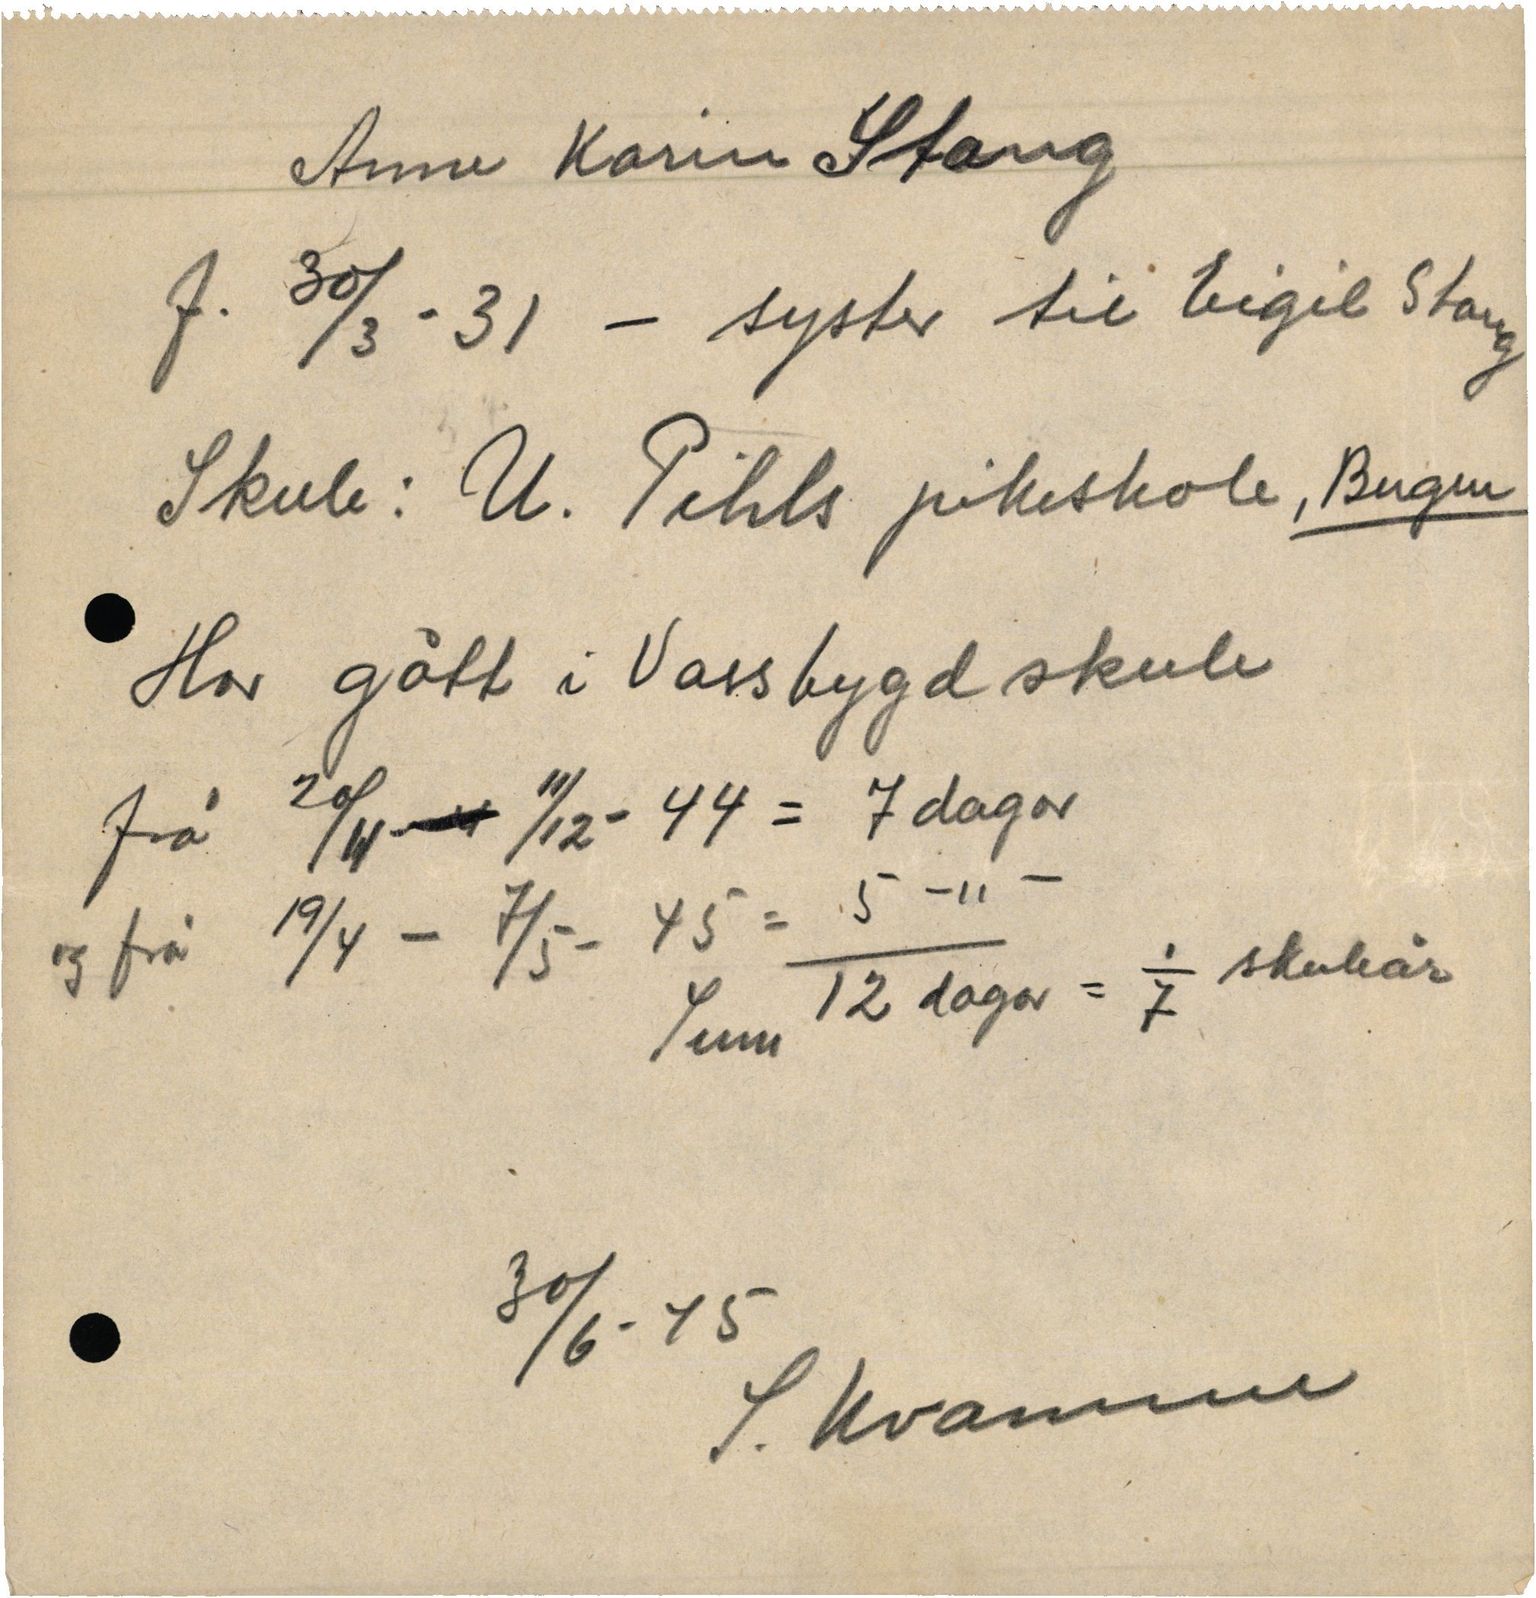 Anne Karin Stang
f. 30/3 - 31 - syster til Eigil Stang
Skule: U. Pihls pikeskole, Bergen
Har gått i Vassbygd skule
frå 20/11 - 11/12 - 44 = 7 dagar
og frå 19/4 - 7/5 - 45 = 5 -"-
Sum 12 dagar = 1/7 skuleår
30/6 - 45
S. Kvamme